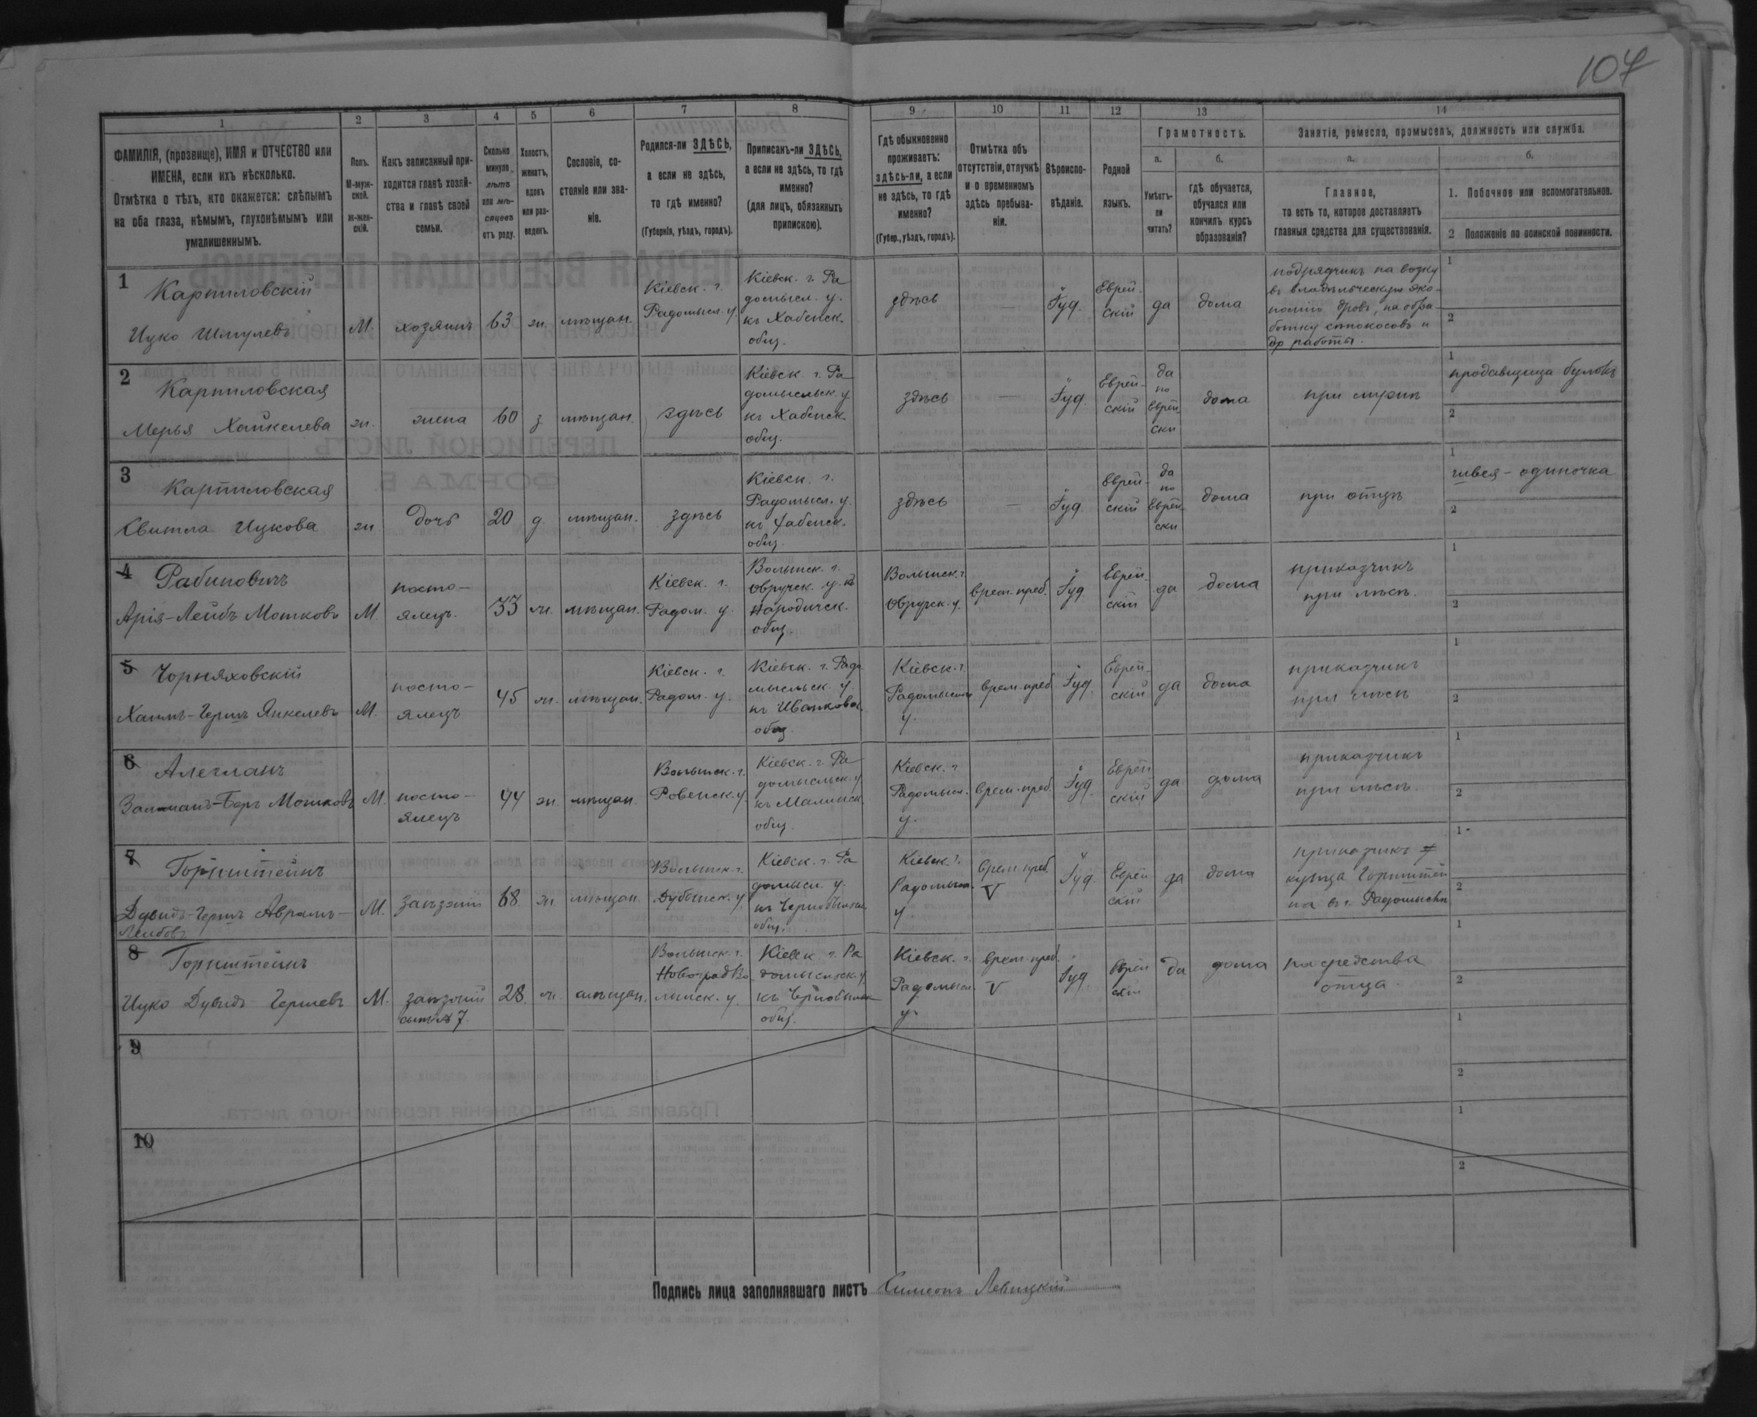 107
1 2 3 4 5 6 7 8 9 10 11 12 13 14
ФАМИЛІЯ, (прозвище), ИМЯ и ОТЧЕСТВО или
ИМЕНА, если ихъ нѣсколько.
Отмѣтка о тѣхъ, кто окажется: слѣпымъ
на оба глаза, нѣмымъ, глухонѣмымъ или
умалишеннымъ.
Полъ.
М-муж-
ской.
ж-жен-
скій.
Какъ записанный при-
ходится главѣ хозяй-
ства и главѣ своей
семьи.
Сколько
минуло
лѣтъ
или мѣ-
сяцевъ
отъ роду.
Холостъ,
женатъ,
вдовъ
или раз-
веденъ.
Сословіе, со-
стояніе или зва-
ніе.
Родился-ли ЗДѢСЬ,
а если не здѣсь,
то гдѣ именно?
(Губернія, уѣздъ, городъ).
Приписанъ-ли ЗДѢСЬ,
а если не здѣсь, то гдѣ
именно?
(для лицъ, обязанныхъ
припискою).
Гдѣ обыкновенно
проживаетъ:
здѣсь-ли, а если
не здѣсь, то гдѣ
именно?
(Губер., уѣздъ, городъ).
Отмѣтка объ
отсутствіи, отлучкѣ
и о временномъ
здѣсь пребыва-
ніи.
Вѣроиспо-
вѣданіе.
Родной
языкъ.
Грамотность.
а.
Умѣетъ-
ли
читать?
б.
гдѣ обучается,
обучался или
кончилъ курсъ
образованія?
Занятіе, ремесло, промыселъ, должность или служба.
а.
Главное,
то есть то, которое доставляетъ
главныя средства для существованія.
б.
1. Побочное или вспомогательное.
2 Положеніе по воинской повинности.
1
Карпиловскій
Ицко Шмулевъ
М.
хозяинъ
63
ж.
мѣщан.
Кіевск. г.
Радомысл. у.
Кіевск. г. Ра
домысл. у.
къ Хабенск.
общ.
здѣсь
—
Іуд.
Еврей-
скій
да
дома
подрядчикъ на водку
въ владѣльческую эко-
номію дровъ, на обра
ботку сѣнокосовъ и
др работы.
1
2
2
Карпиловская
Мерья Хайкелева
ж.
жена
60
з
мѣщан.
здѣсь
Кіевск г. Ра
домысльск. у
къ Хабенск
общ.
здѣсь
—
Іуд.
Еврей-
скій
да
по
еврей
ски
дома
при мужѣ
1
продавщица булокъ
2
3
Карпиловская
Ицкова
ж.
дочь
20
д.
мѣщан.
здѣсь
Кіевск. г.
Радомысл. у.
къ Хабенск.
общ.
здѣсь
—
Іуд.
Еврей-
скій
да
по
еврей
ски
дома
при отцѣ
1
швея-одиночка
2
4
Рабиновичъ
Арія-Лейбъ Мошковъ
М.
посто-
ялецъ.
33
ж.
мѣщан.
Кіевск. г.
Радом. у.
Волынск. г.
Овручск. у. къ
Народичск.
общ.
Волынск. г.
Овручск. у.
врем. преб.
Іуд.
Еврей-
скій
да
дома
приказчикъ
при лѣсѣ.
1
2
5
Черняховскій
Хаимъ-Гершъ Янкелевъ
М.
посто-
ялецъ
45
ж.
мѣщан.
Кіевск. г.
Радом. у.
Кіевск. г. Радо
мысльск. у.
къ Иванковск.
общ.
Кіевск. г
Радомысл.
у.
врем. преб.
Іуд.
Еврей-
скій
да
дома
приказчикъ
при лѣсѣ
1
2
6
Мошковъ
М.
посто-
ялецъ
44
ж.
мѣщан.
Волынск. г.
Ровенск. у
Кіевск. г. Ра
домысльск. у
къ Малинск.
общ.
Кіевск. г
Радомысл.
у.
врем. преб
Іуд.
Еврей-
скій
да
дома
приказчикъ
при лѣсѣ.
1
2
7
Горнштейнъ
Дувидъ-Гершъ Аврамъ-
Лейбовъ
М.
заѣзжій
68
ж.
мѣщан.
Волынск. г.
Дубенск. у.
Кіевск. г. Ра
домысл. у.
къ Чернобыльск
общ.
Кіевск г.
Радомысл.
у
врем. преб.
V
Іуд.
Еврей
скій
да
дома
приказчикъ
купца Горнштей
на въ г. Радомыслѣ
1
2
8
Горнштейнъ
Ицко Дувидъ Гершевъ
М.
заѣзжій
сынъ 7.
28
ж.
мѣщан.
Волынск. г.
Новоградво
лынск. у.
Кіевск г. Ра
домысльск. у
къ Чернобыльск
общ.
Кіевск. г.
Радомысл.
у.
врем. преб.
V
Іуд.
Еврей
скій
да
дома
на средства
отца
1
2
9
1
2
10
1
2
Подпись лица заполнявшаго листъ Симеонъ Левицкій